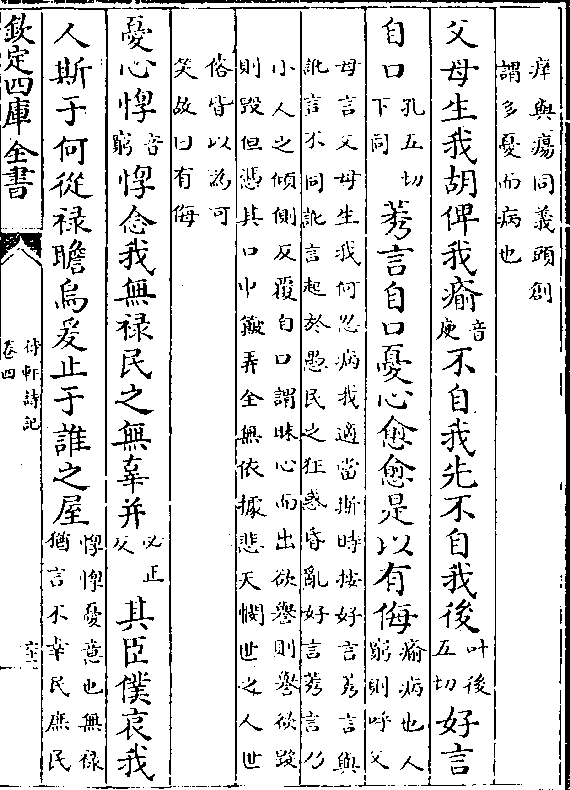 痒與瘍同義頭創
謂多憂而病也
父母生我胡俾我瘉音庾不自我先不自我後叶後五切好言
自口孔五切下同莠言自口憂心愈愈是以有侮瘉病也人窮則呼父
母言父母生我何忍病我適當斯時按好言莠言與
訛言不同訛言起於愚民之狂惑昏亂好言莠言乃
小人之傾側反覆自口謂昧心而出欲譽則譽欲毀
則毀但憑其口中簸弄全無依據悲天憫世之人世
俗皆以為可
笑故曰有侮
憂心惸音窮惸念我無祿民之無辜并必正反其臣僕哀我
人斯于何從祿瞻烏爰止于誰之屋惸惸憂意也無祿猶言不幸民庶民
欽定四庫全書
待軒詩記
卷四